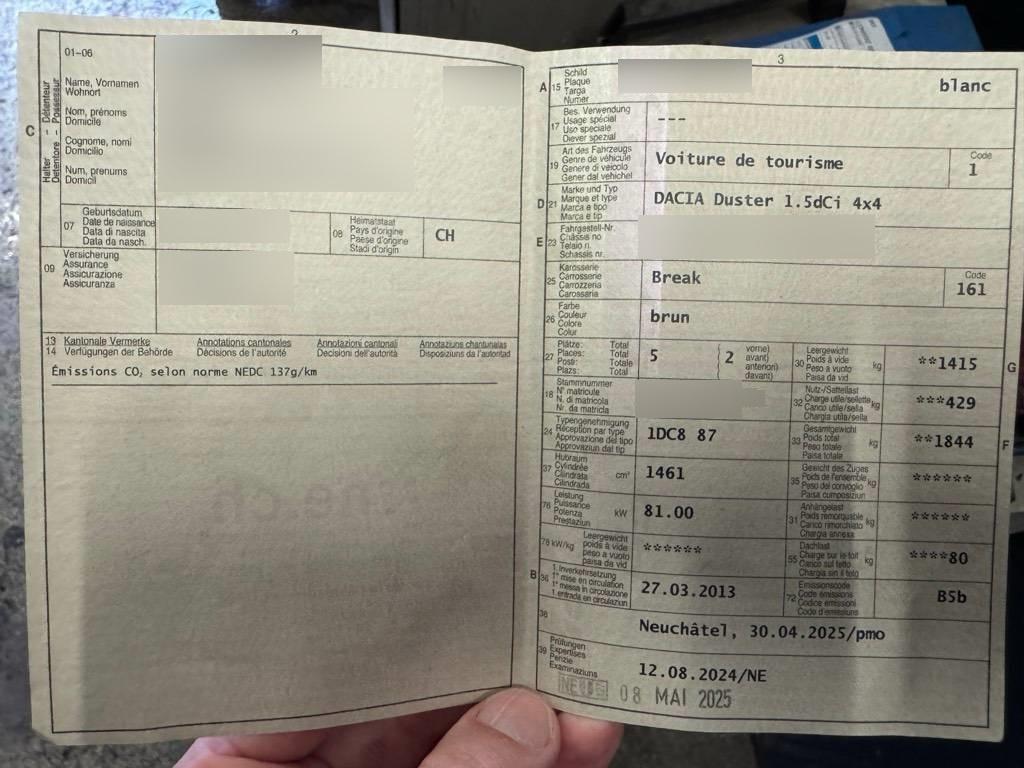 2
01-06
Name, Vornamen
Wohnort
Nom, prénoms
Domicile
Cognome, nomi
Domicilio
Num, prenums
Domicil
C
Halter – Détenteur
Detentore – Possessur
07
Geburtsdatum
Date de naissance
Data di nascita
Data da nasch.
08
Heimatstaat
Pays d'origine
Paese d'origine
Stadi d'origin
CH
09
Versicherung
Assurance
Assicurazione
Assicuranza
13 Kantonale Vermerke Annotations cantonales Annotazioni cantonali Annotaziuns chantunalas
14 Verfügungen der Behörde Décisions de l'autorité Decisioni dell'autorità Disposiziuns da l'autoritad
Émissions CO₂ selon norme NEDC 137g/km
3
A 15
Schild
Plaque
Targa
Numer
blanc
17
Bes. Verwendung
Usage spécial
Uso speciale
Diever spezial
---
19
Art des Fahrzeugs
Genre de véhicule
Genere di veicolo
Gener dal vehichel
Voiture de tourisme
Code
1
D 21
Marke und Typ
Marque et type
Marca e tipo
Marca e tip
DACIA Duster 1.5dCi 4x4
E 23
Fahrgestell-Nr.
Châssis no
Telaio n.
Schassis nr.
25
Karosserie
Carrosserie
Carrozzeria
Carossaria
Break
Code
161
26
Farbe
Couleur
Colore
Colur
brun
27
Plätze: Total
Places: Total
Posti: Totale
Plazs: Total
5
2
vorne)
avant)
anteriori)
davant)
30
Leergewicht
Poids à vide
Peso a vuoto
Paisa da vid
kg
**1415
G
18
Stammnummer
N° matricule
N. di matricola
Nr. da matricla
32
Nutz-/Sattellast
Charge utile/sellette
Carico utile/sella
Chargia utila/sella
kg
***429
24
Typengenehmigung
Réception par type
Approvazione del tipo
Approvaziun dal tip
1DC8 87
33
Gesamtgewicht
Poids total
Peso totale
Paisa totala
kg
**1844
F
37
Hubraum
Cylindrée
Cilindrata
Cilindrada
cm³
1461
35
Gewicht des Zuges
Poids de l'ensemble
Peso del convoglio
Paisa cumposiziun
kg
******
76
Leistung
Puissance
Potenza
Prestaziun
kW
81.00
31
Anhängelast
Poids remorquable
Carico rimorchiato
Chargia annexa
kg
******
78 kW/kg
Leergewicht
poids à vide
peso a vuoto
paisa da vid
******
55
Dachlast
Charge sur le toit
Carico sul tetto
Chargia sin il tetg
kg
****80
B 36
1. Inverkehrsetzung
1re mise en circulation
1a messa in circolazione
1. entrada en circulaziun
27.03.2013
72
Emissionscode
Code émissions
Codice emissioni
Code d'emissiuns
B5b
38
Neuchâtel, 30.04.2025/pmo
39
Prüfungen
Expertises
Perizie
Examinaziuns
12.08.2024/NE
08 MAI 2025